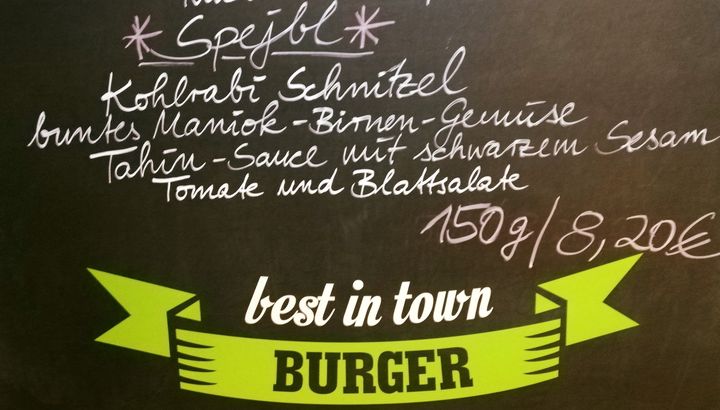 *Spejbl*
Kohlrabi Schnitzel
buntes Maniok-Birnen-Gemüse
Tahin-Sauce mit schwarzem Sesam
Tomate und Blattsalate
150g/8,20€
best in town
BURGER